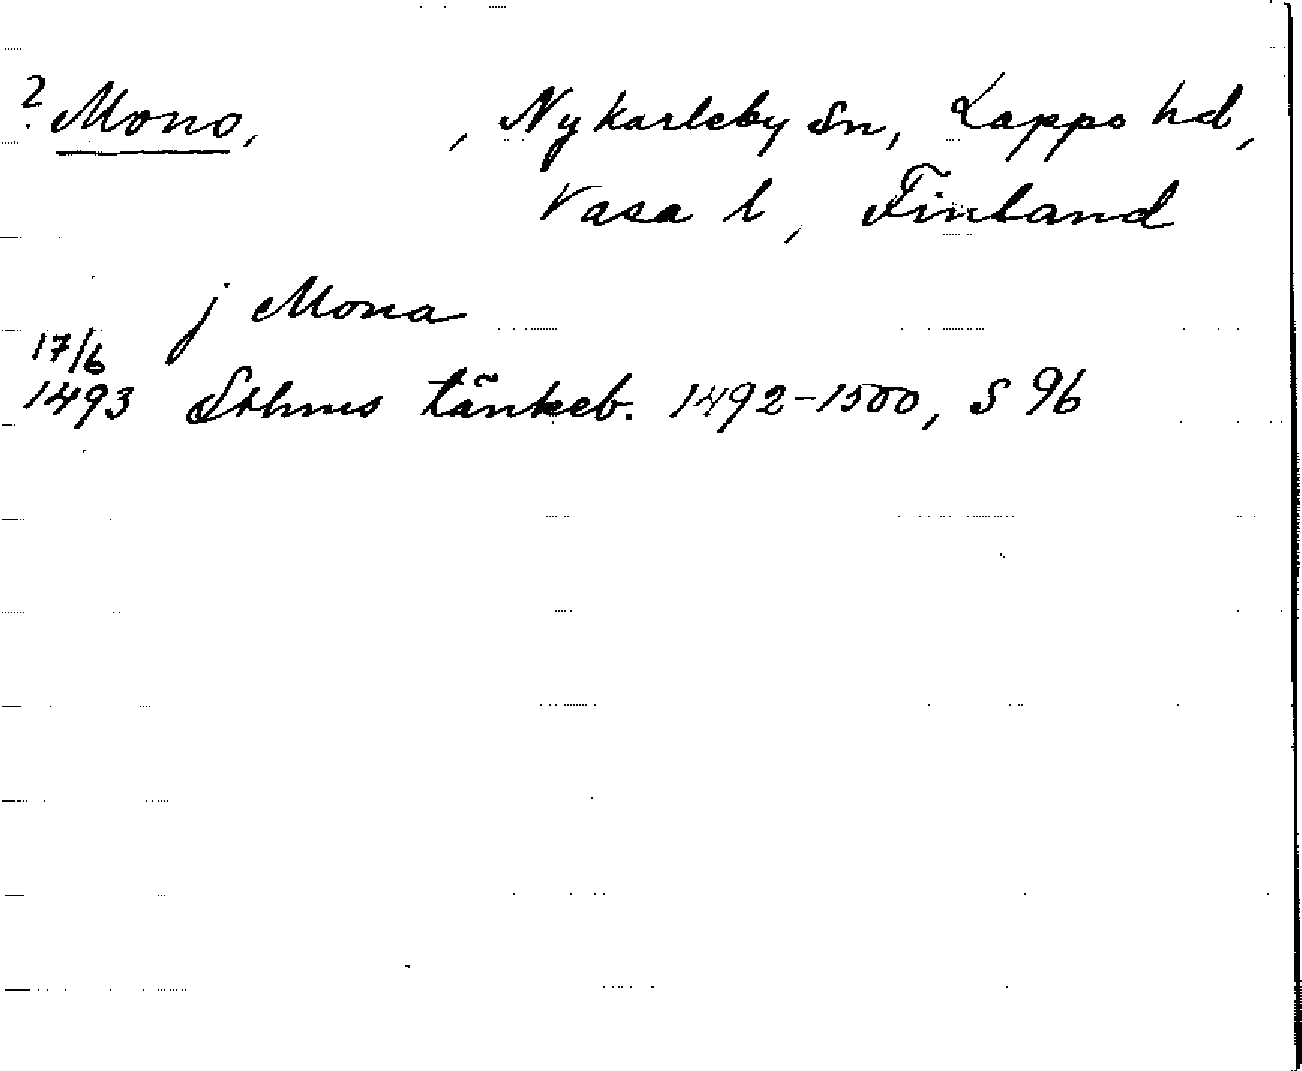 ? Mono, , Nykarleby sn, Lappo hd,
Vasa l, Finland
j Mona
17/6
1493 Sthms tänkeb. 1492-1500, S 96